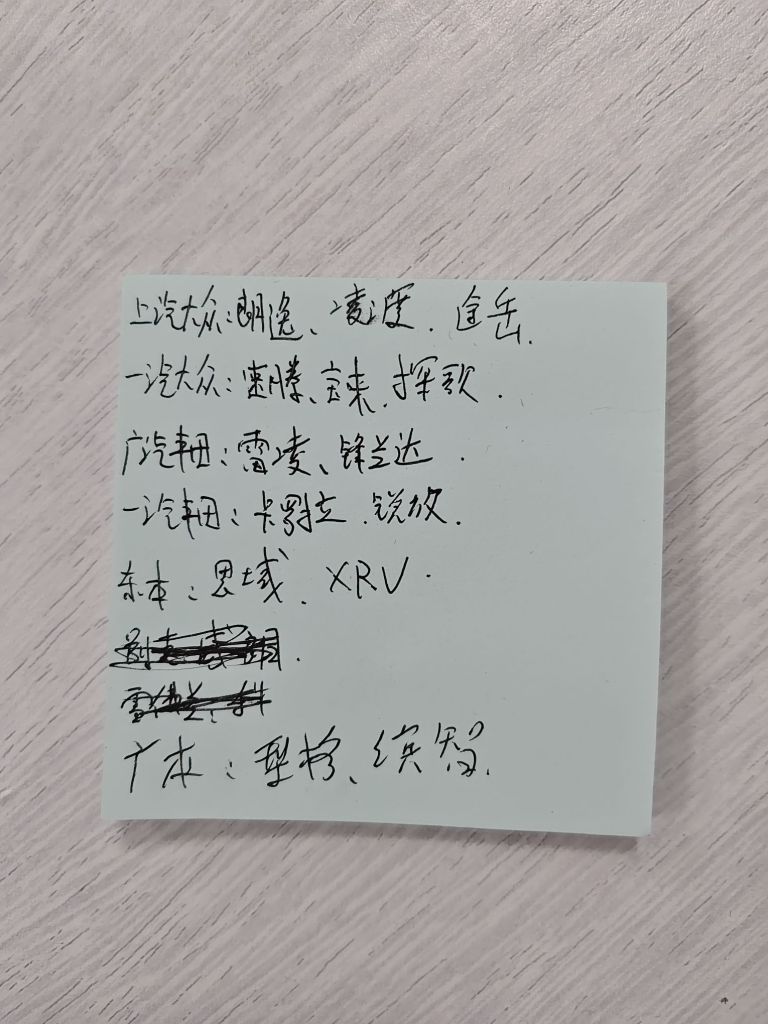 上汽大众:朗逸、凌渡.途岳.
一汽大众:速腾、宝来.探歌.
广汽丰田:雷凌、锋兰达.
一汽丰田:卡罗拉.锐放.
东本:思域.XRV.
广本:型格、缤智.